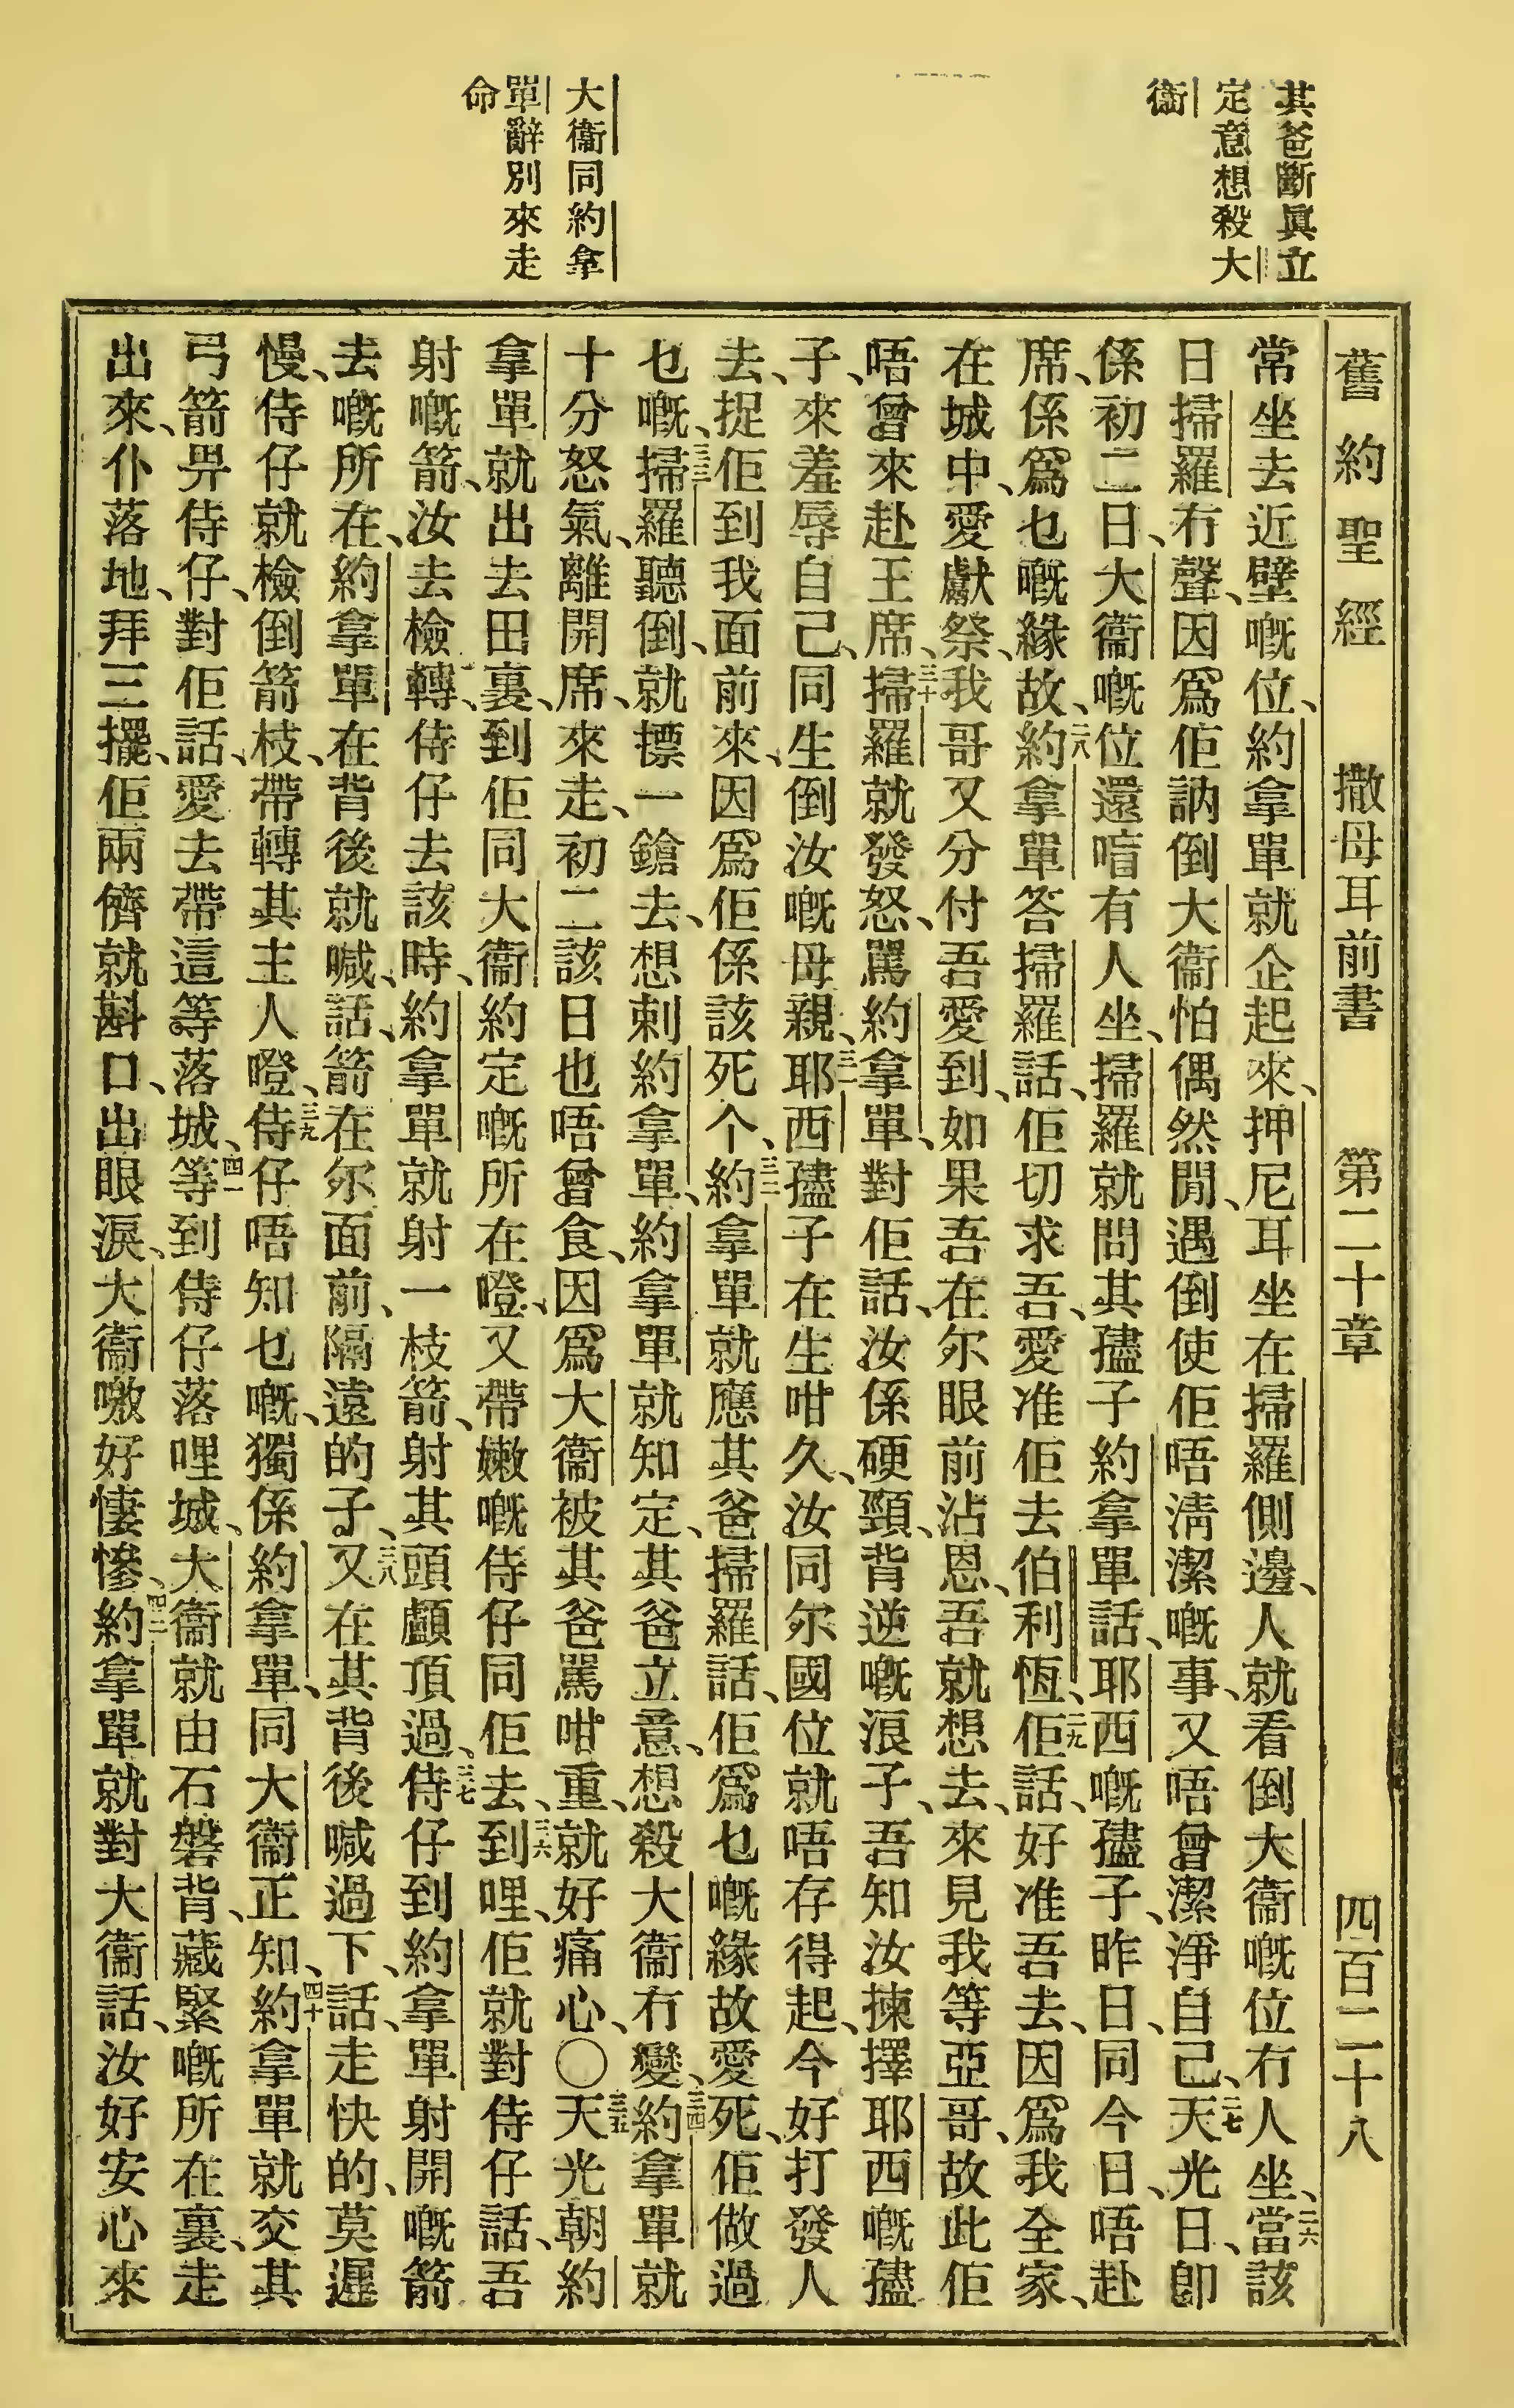 其爸斷眞立
定意想殺大
衞
大衞同約拿
單辭別來走
命
舊約聖經 撒母耳前書 第二十章 四百二十八
常坐去近壁嘅位、約拿單就企起來、押尼耳坐在掃羅側邊、人就看倒大衞嘅位冇人坐、二六當該
日掃羅冇聲、因爲佢訥倒大衞怕偶然閒、遇倒使佢唔淸潔嘅事、又唔曾潔淨自己、二七天光日、卽
係初二日、大衞嘅位還喑有人坐、掃羅就問其𡥧子約拿單話、耶西嘅𡥧子、昨日、同今日、唔赴
席、係爲乜嘅緣故、二八約拿單答掃羅話、佢切求吾、愛准佢去伯利恆、二九佢話、好准吾去、因爲我全家、
在城中、愛獻祭、我哥又分付吾愛到、如果吾在尔眼前沾恩、吾就想去、來見我等亞哥、故此佢
唔曾來赴王席、三十掃羅就發怒、罵約拿單、對佢話、汝係硬頸、背逆嘅浪子、吾知汝揀擇耶西嘅𡥧
子、來羞辱自己、同生倒汝嘅母親、三一耶西𡥧子在生咁久、汝同尔國位就唔存得起、今好打發人
去、捉佢到我面前來、因爲佢係該死个、三二約拿單就應其爸掃羅話、佢爲乜嘅緣故愛死、佢做過
乜嘅、三三掃羅聽倒、就摽一鎗去、想刺約拿單、約拿單就知定、其爸立意、想殺大衞冇變、三四約拿單就
十分怒氣、離開席、來走、初二該日也唔曾食、因爲大衞被其爸罵咁重、就好痛心、〇三五天光朝約
拿單就出去田裏、到佢同大衞約定嘅所在嶝、又帶嫩嘅侍仔同佢去、三六到哩、佢就對侍仔話、吾
射嘅箭、汝去檢轉、侍仔去該時、約拿單就射一枝箭、射其頭顱頂過、三七侍仔到約拿單射開嘅箭
去嘅所在、約拿單在背後就喊、話、箭在尔面前、隔遠的子、三八又在其背後喊過下、話、走快的、莫遲
慢、侍仔就檢倒箭枝、帶轉其主人嶝、三九侍仔唔知乜嘅、獨係約拿單、同大衞正知、四十約拿單就交其
弓箭畀侍仔、對佢話、愛去帶這等落城、四一等到侍仔落哩城、大衞就由石磐背、藏緊嘅所在裏、走
出來、仆落地、拜三擺、佢兩儕就斟口、出眼淚、大衞噭好悽慘、四二約拿單就對大衞話、汝好安心來